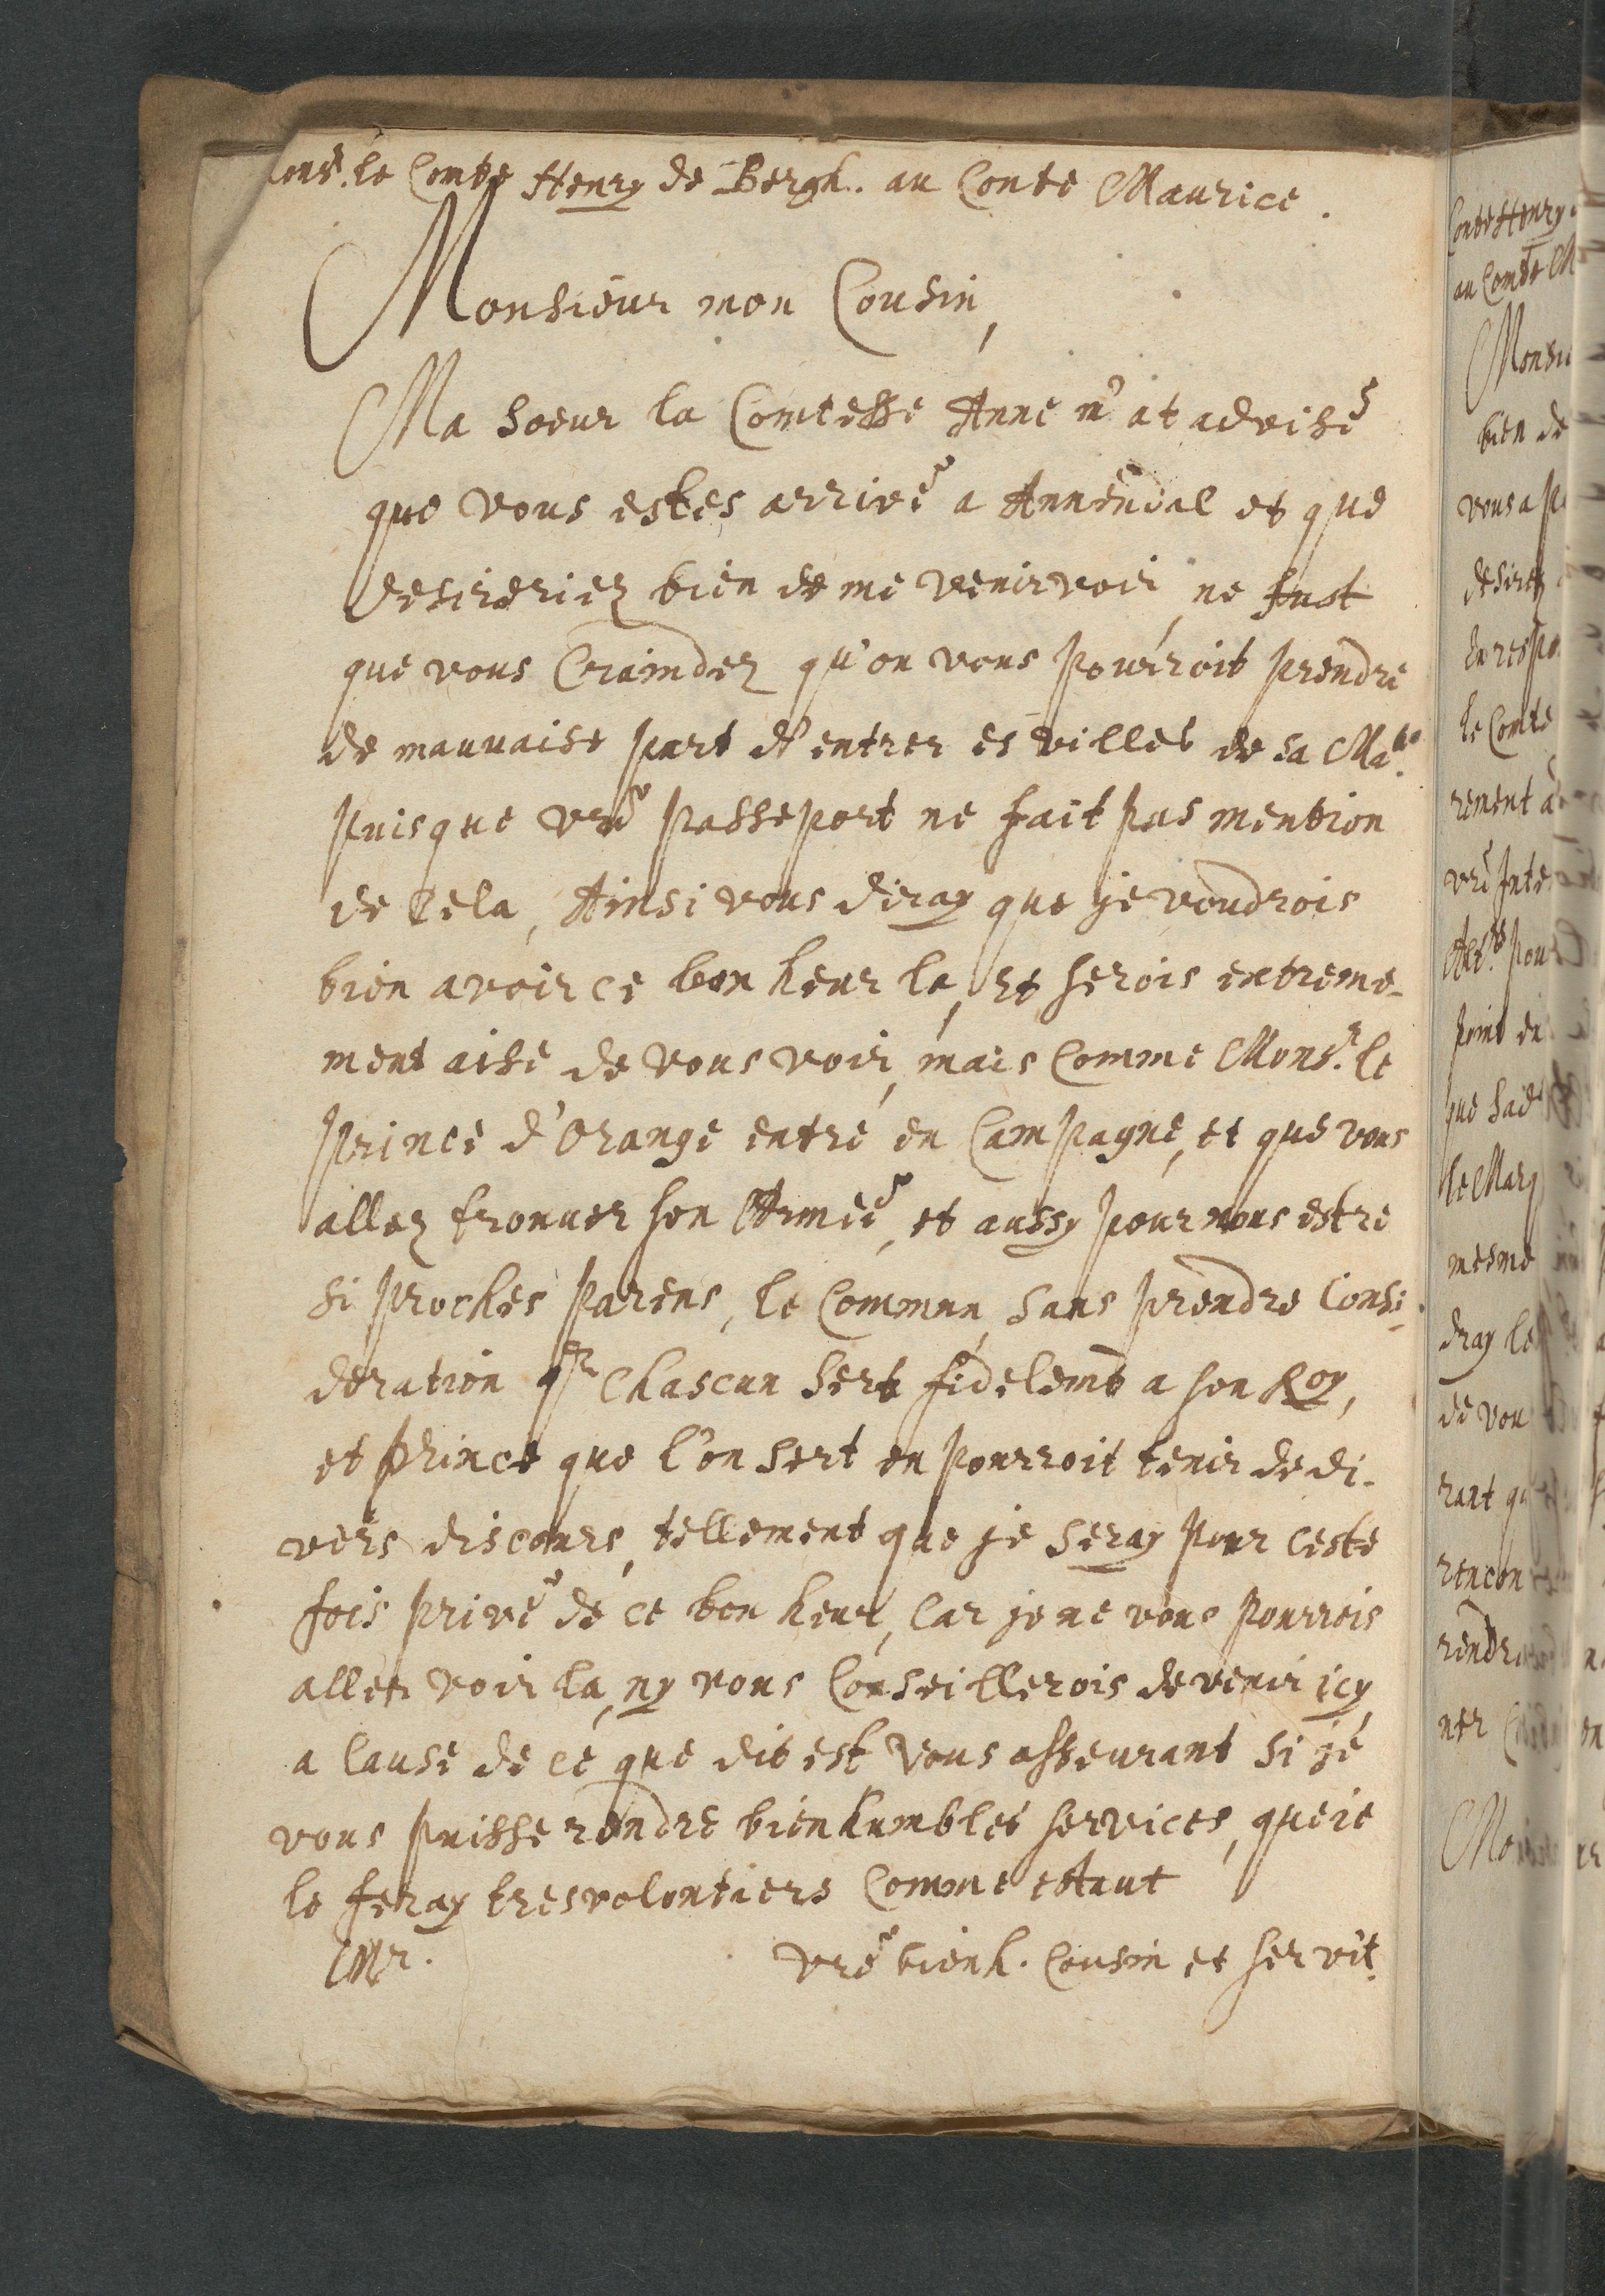 Mons.r le Comte Henry de Bergh. au Conte Maurice.
Monsieur mon Cousin,
Ma soeur la Comtesse Anne m'at advisé
que vous estes arrivé a Annendal et que
desireriez bien de me venir voir, ne fust
que vous Craindez qu'on vous pourroit prendre
de mauvaise part d'entrer es villes de sa Ma.te
puisque vre passeport ne fait pas mention
de Cela, Ainsi vous diray que je voudrois
bien avoir ce bon heur la, et serois extreme-
ment aise de vous voir, mais Comme Mons.r le
Prince d'Orange entre en Campagne, et que vous
allez trouver son Armée, et aussy pour nous estre
si proches Parens, le Commun, sans prendre Consi-
deration que Chascun sert fidelemt a son Roy,
et Prince que l'on sert en pourroit tenir de di-
vers discours, tellement que je seray pour ceste
fois privé de ce bon heur, Car je ne vous pourrois
aller voir la, ny vous Conseillerois de venir icy,
a Cause de ce que dit est vous asseurant si je
vous puisse rendre bien humbles services, que ie
le feray tresvolontiers Comme estant
Mr. vre bien h. Cousin et servit.
Conte Henry
au Comte M
Monsi
bien de
vous a
desirez
en respo
le Comte
rement a
vre Inte
Alt.e pou
point en
que sad
le Marq
mesme
dray le
de vou
rant qu
rencon
rendr
ner
Mo